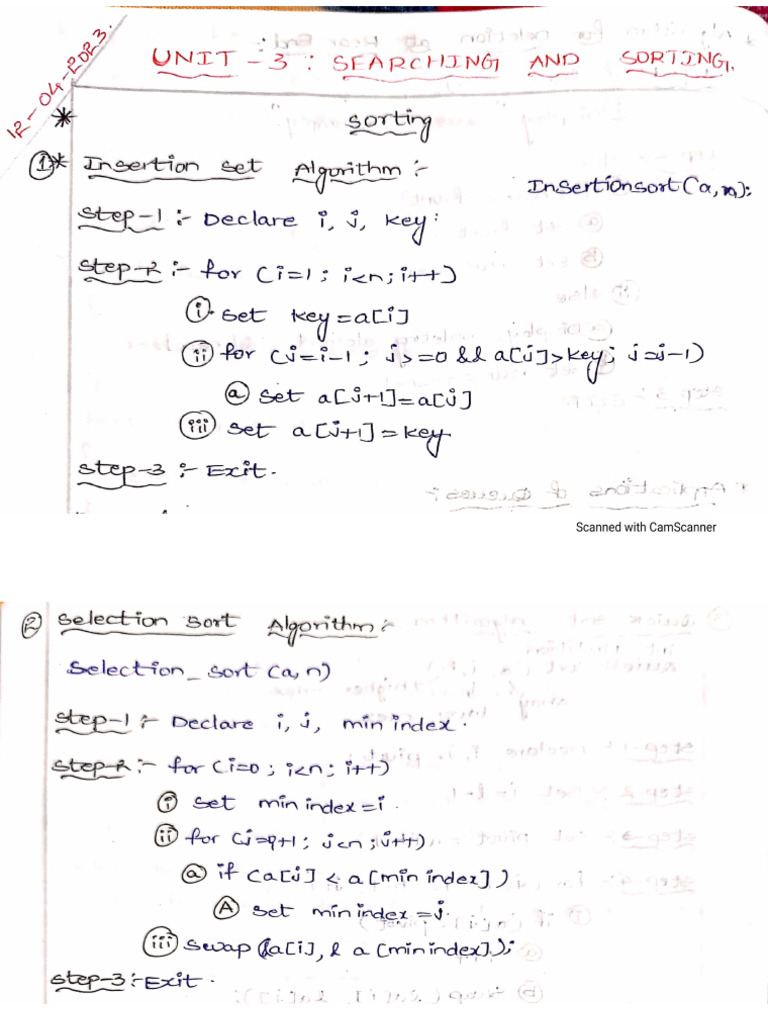 12-04-2023.
UNIT - 3 : SEARCHING AND SORTING.
* Sorting
①* Insertion set Algorithm :-
Insertionsort(a,n):
Step-1 :- Declare i, j, key:
Step-2 :- for (i=1 ; i<n ; i++)
(i) set key = a[i]
(ii) for (j=i-1 ; j>=0 && a[j]>key; j=j-1)
(a) set a[j+1]=a[j]
(iii) set a[j+1]=key
Step-3 :- Exit.
Scanned with CamScanner
② Selection Sort Algorithm :-
Selection_sort (a,n)
Step-1 :- Declare i, j, min index.
Step-2 :- for (i=0 ; i<n ; i++)
(i) set min index = i.
(ii) for (j=i+1 ; j<n ; j++)
(a) if (a[j] < a[min index])
(A) set min index = j.
(iii) swap (&a[i], & a[min index]);
Step-3 :- Exit.